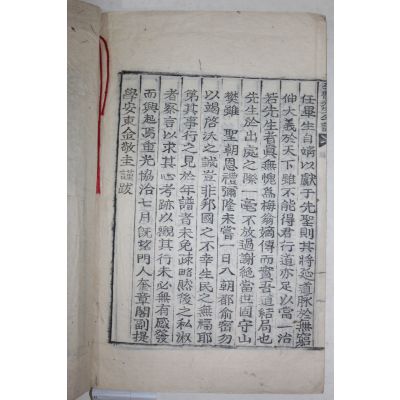 任畢生自靖以獻于先聖則其將延道脉於無窮
伸大義於天下雖不能得君行道亦足以當一治
若先生者眞無愧爲梅翁嫡傳而實吾道結局也
先生於出處之際一毫不放過謝絶當世固守山
樊雖 聖朝恩禮彌隆未嘗一日入朝都俞密勿
以竭啓沃之誠豈非邦國之不幸生民之無福耶
第其事行之見於年譜者未免疎略然後之私淑
者察言以求其心考跡以觀其行未必無有感發
而興起焉重光協洽七月旣望門人奎章閣副提
學安東金敬圭謹跋